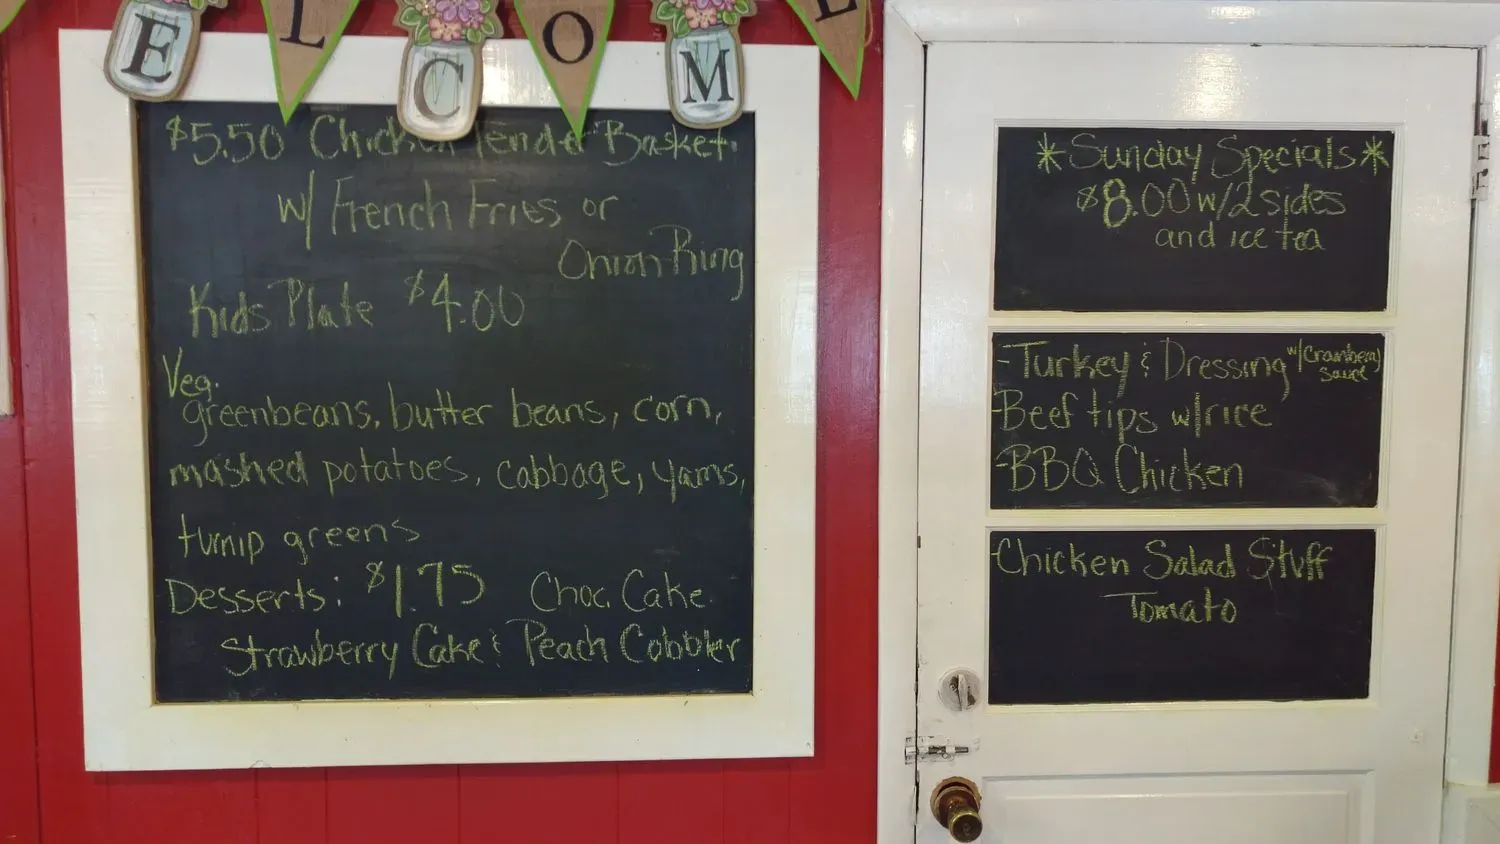 E L C O M E
$5.50 Chicken Tender Basket.
w/ French Fries or
Onion Ring
Kids Plate $4.00
Veg.
greenbeans, butter beans, corn,
mashed potatoes, cabbage, yams,
turnip greens
Desserts: $1.75 Choc. Cake
Strawberry Cake & Peach Cobbler
*Sunday Specials*
$8.00 w/2 sides
and ice tea
-Turkey & Dressing w/Cranberry
sauce
-Beef tips w/rice
-BBQ Chicken
-Chicken Salad Stuff
Tomato